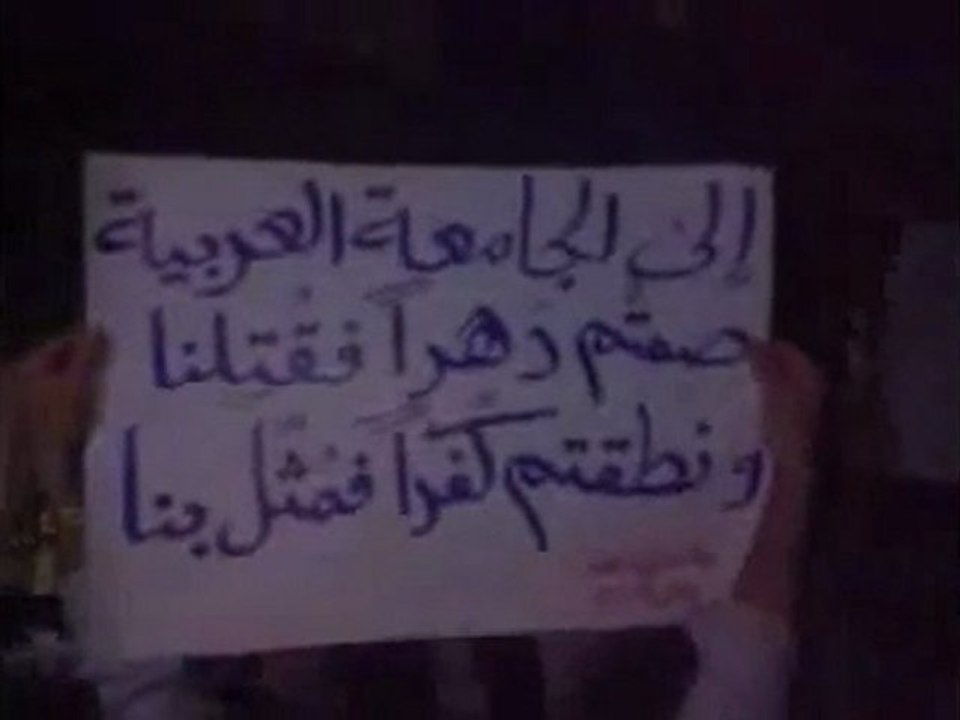 إلى الجامعة العربية
صمتم دهراً فقتلنا
ونطقتم كفراً فمثّل بنا